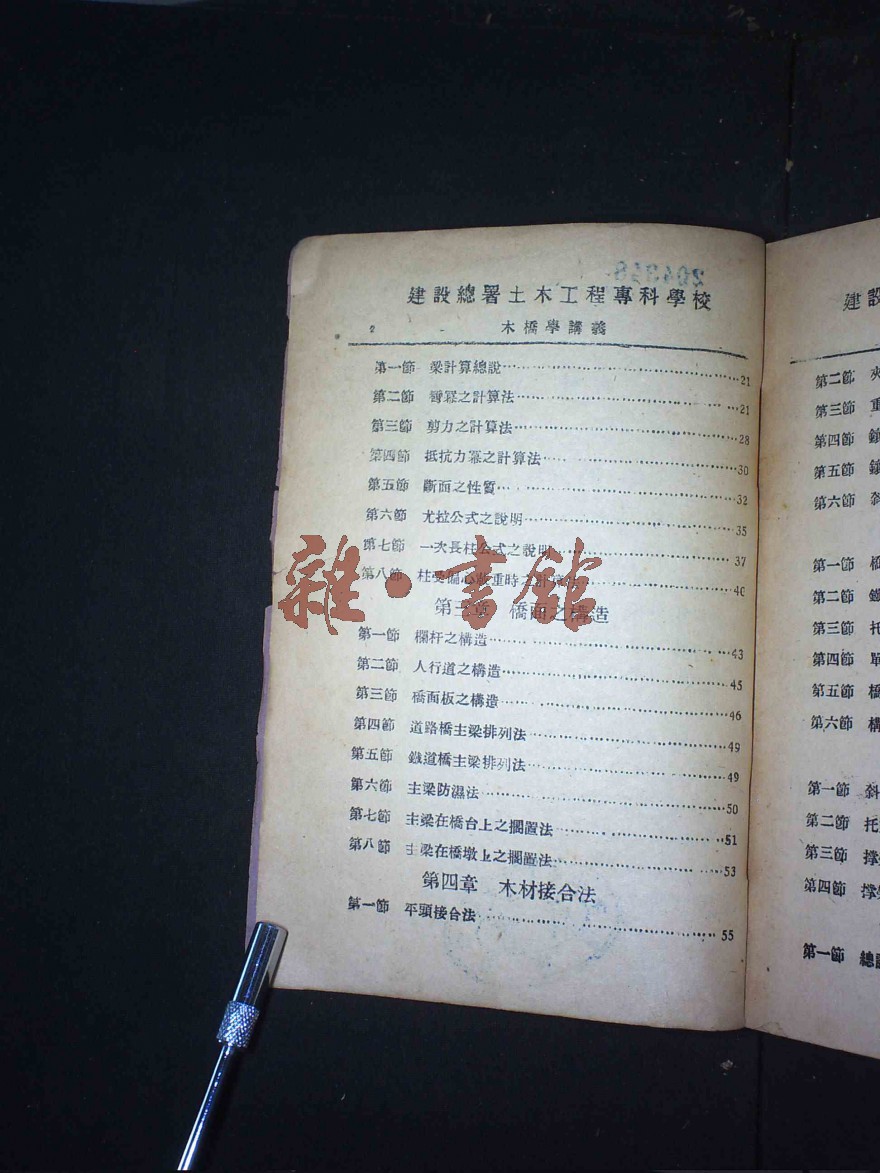 建設總署土木工程專科學校
2 木橋學講義
第一節 梁計算總說 21
第二節 彎冪之計算法 21
第三節 剪力之計算法 28
第四節 抵抗力冪之計算法 30
第五節 斷面之性質 32
第六節 尤拉公式之說明 35
第七節 一次長柱公式之說明 37
第八節 柱受偏心載重時之計算法 40
第三章 橋面之構造
第一節 欄杆之構造 43
第二節 人行道之構造 45
第三節 橋面板之構造 46
第四節 道路橋主梁排列法 49
第五節 鐵道橋主梁排列法 49
第六節 主梁防濕法 50
第七節 主梁在橋台上之擱置法 51
第八節 主梁在橋墩上之擱置法 53
第四章 木材接合法
第一節 平頭接合法 55
雜·書館
建設
第二節
第三節 重
第四節
第五節
第六節
第一節
第二節
第三節 托
第四節 單
第五節 橋
第六節 構
第一節 斜
第二節 托
第三節 撐
第四節 撐
第一節 總